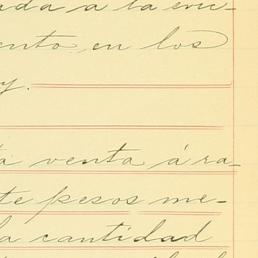 ada a la evic-
ento en los
y.
a venta á ra-
te pesos me-
la cantidad